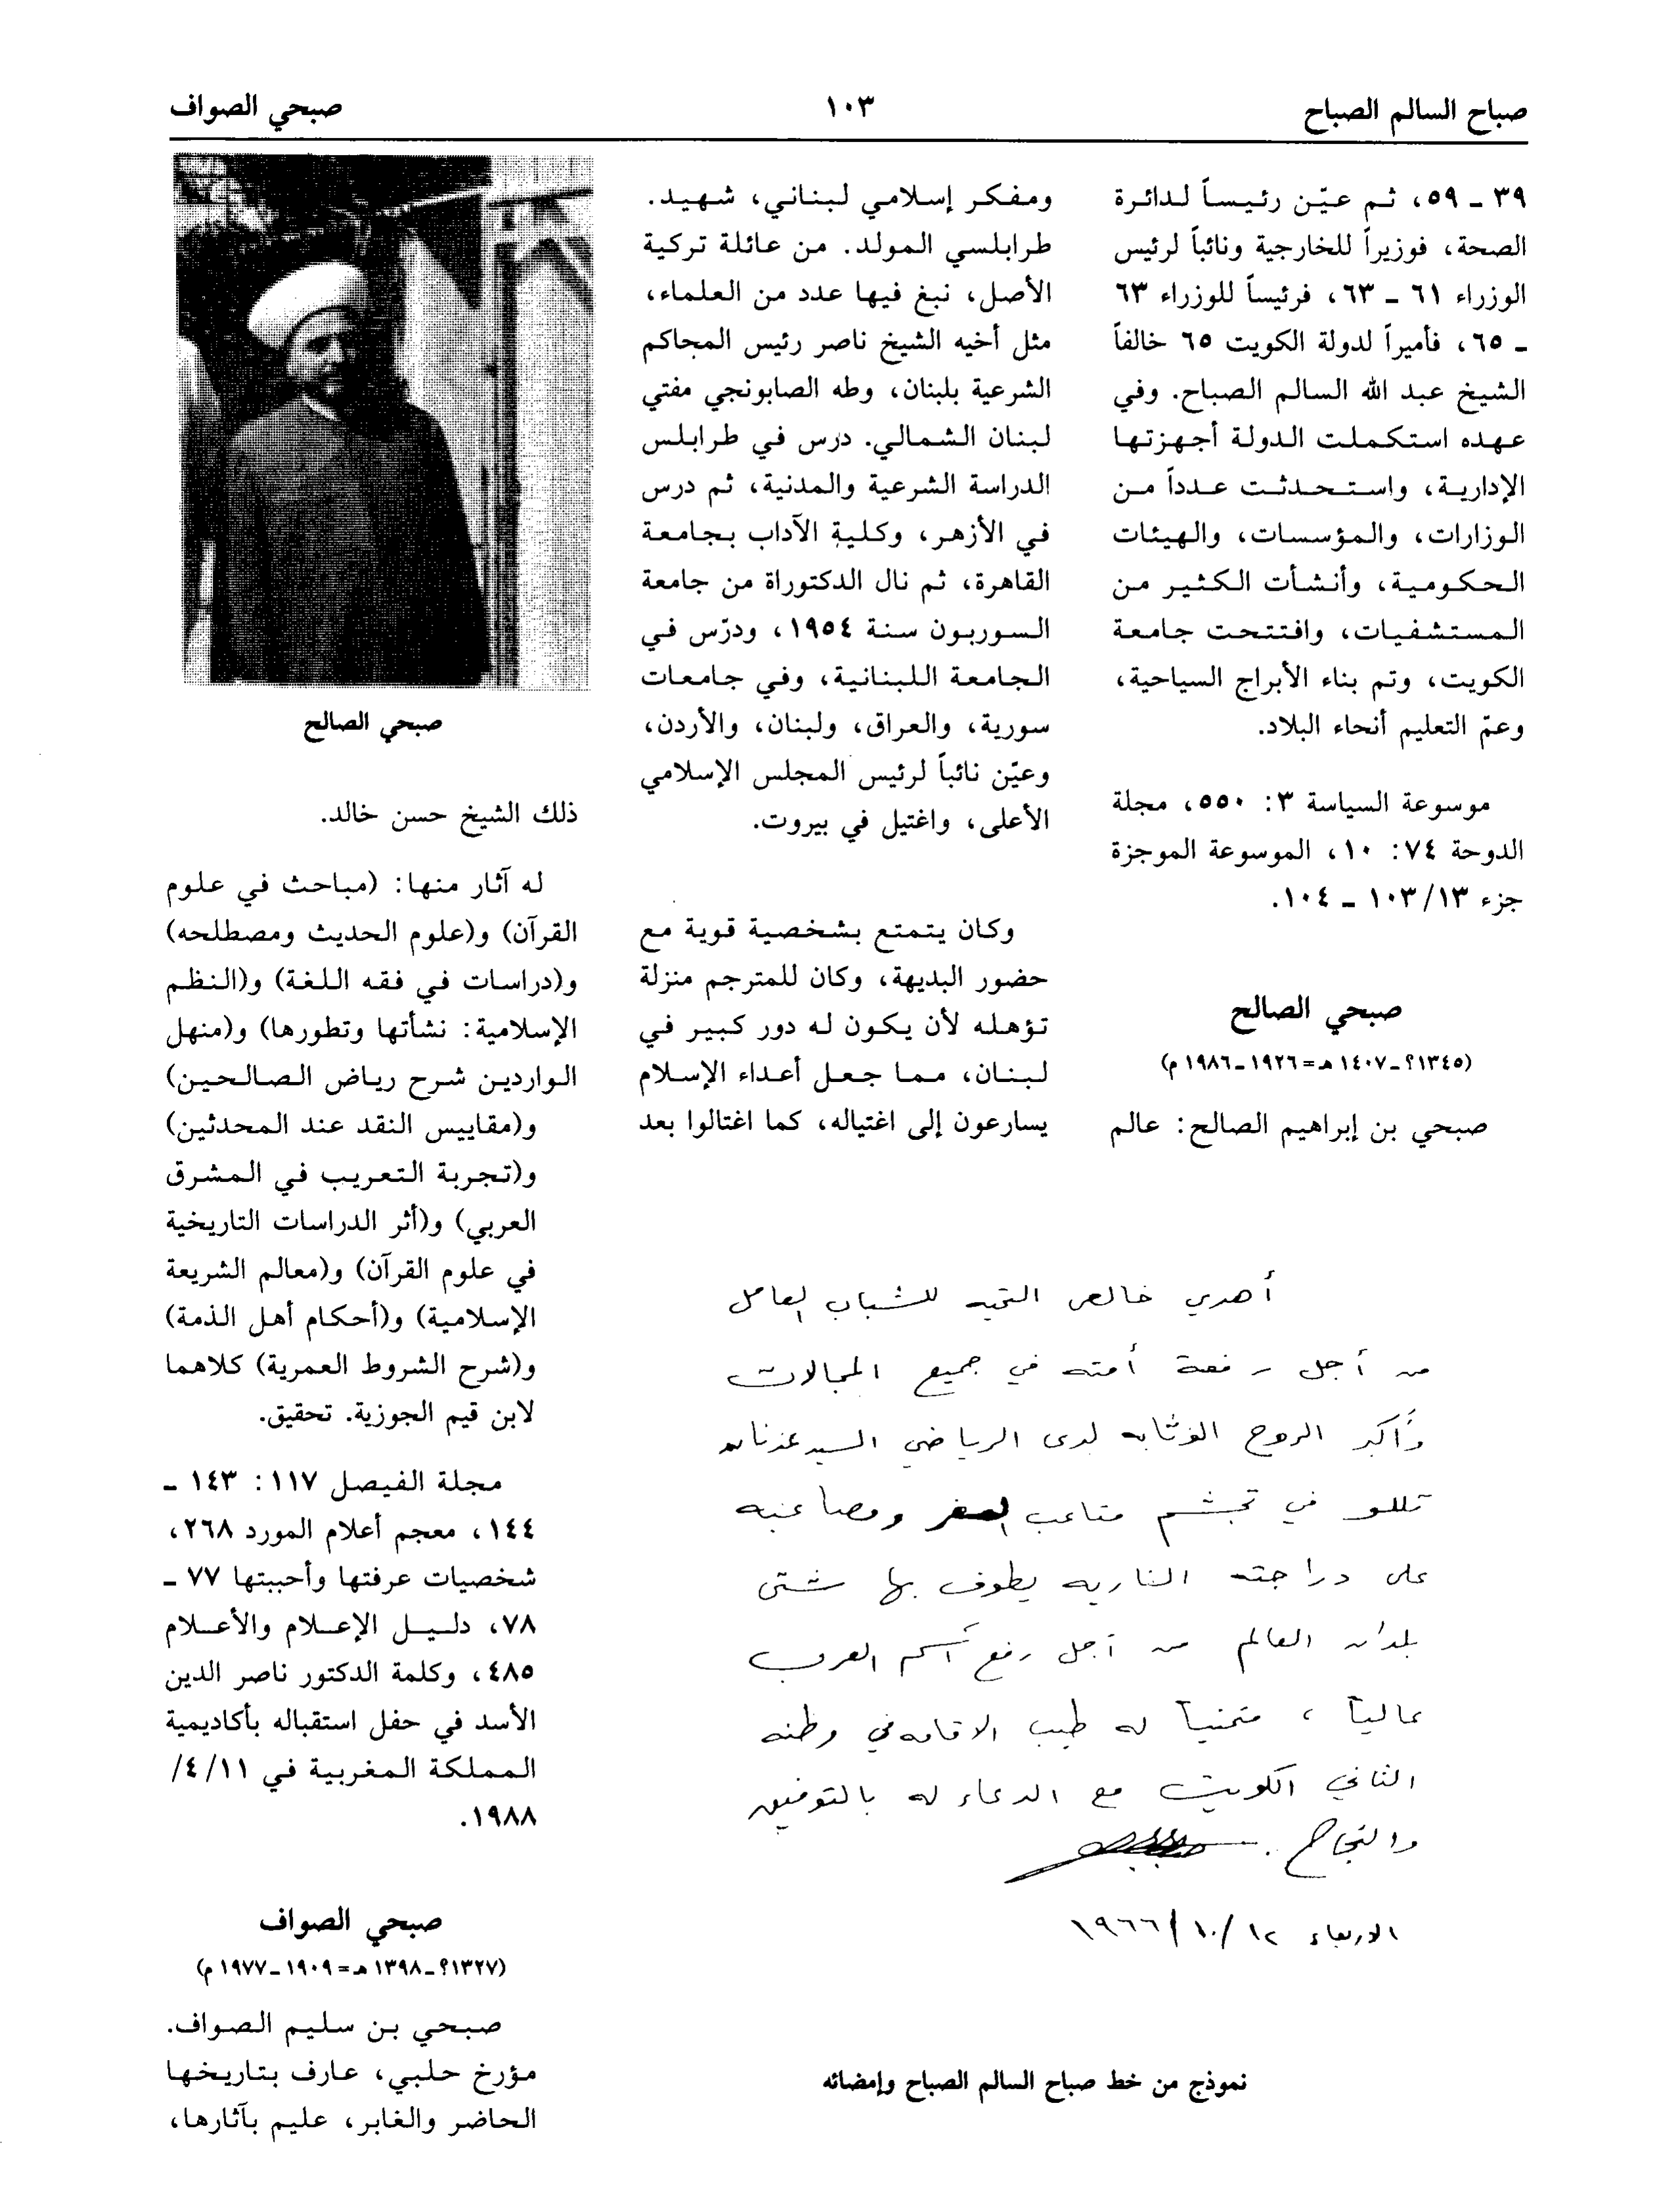 صباح السالم الصباح
١٠٣
صبحي الصواف
٣٩ ـ ٥٩، ثم عيّن رئيساً لدائرة
الصحة، فوزيراً للخارجية ونائباً لرئيس
الوزراء ٦١ ـ ٦٣، فرئيساً للوزراء ٦٣
ـ ٦٥، فأميراً لدولة الكويت ٦٥ خالفاً
الشيخ عبد الله السالم الصباح. وفي
عهده استكملت الدولة أجهزتها
الإدارية، واستحدثت عدداً من
الوزارات، والمؤسسات، والهيئات
الحكومية، وأنشأت الكثير من
المستشفيات، وافتتحت جامعة
الكويت، وتم بناء الأبراج السياحية،
وعمّ التعليم أنحاء البلاد.
موسوعة السياسة ٣: ٥٥٠، مجلة
الدوحة ٧٤: ١٠، الموسوعة الموجزة
جزء ١٣/ ١٠٣ ـ ١٠٤.
صبحي الصالح
(١٣٤٥؟ـ١٤٠٧ هـ=١٩٢٦ـ١٩٨٦ م)
صبحي بن إبراهيم الصالح: عالم
ومفكر إسلامي لبناني، شهيد.
طرابلسي المولد. من عائلة تركية
الأصل، نبغ فيها عدد من العلماء،
مثل أخيه الشيخ ناصر رئيس المحاكم
الشرعية بلبنان، وطه الصابونجي مفتي
لبنان الشمالي. درس في طرابلس
الدراسة الشرعية والمدنية، ثم درس
في الأزهر، وكلية الآداب بجامعة
القاهرة، ثم نال الدكتوراة من جامعة
السوربون سنة ١٩٥٤، ودرّس في
الجامعة اللبنانية، وفي جامعات
سورية، والعراق، ولبنان، والأردن،
وعيّن نائباً لرئيس المجلس الإسلامي
الأعلى، واغتيل في بيروت.
وكان يتمتع بشخصية قوية مع
حضور البديهة، وكان للمترجم منزلة
تؤهله لأن يكون له دور كبير في
لبنان، مما جعل أعداء الإسلام
يسارعون إلى اغتياله، كما اغتالوا بعد
صبحي الصالح
ذلك الشيخ حسن خالد.
له آثار منها: (مباحث في علوم
القرآن) و(علوم الحديث ومصطلحه)
و(دراسات في فقه اللغة) و(النظم
الإسلامية: نشأتها وتطورها) و(منهل
الواردين شرح رياض الصالحين)
و(مقاييس النقد عند المحدثين)
و(تجربة التعريب في المشرق
العربي) و(أثر الدراسات التاريخية
في علوم القرآن) و(معالم الشريعة
الإسلامية) و(أحكام أهل الذمة)
و(شرح الشروط العمرية) كلاهما
لابن قيم الجوزية. تحقيق.
مجلة الفيصل ١١٧: ١٤٣ ـ
١٤٤، معجم أعلام المورد ٢٦٨،
شخصيات عرفتها وأحببتها ٧٧ ـ
٧٨، دليل الإعلام والأعلام
٤٨٥، وكلمة الدكتور ناصر الدين
الأسد في حفل استقباله بأكاديمية
المملكة المغربية في ١١/ ٤/
١٩٨٨.
صبحي الصواف
(١٣٢٧؟ـ١٣٩٨ هـ=١٩٠٩ـ١٩٧٧ م)
صبحي بن سليم الصواف.
مؤرخ حلبي، عارف بتاريخها
الحاضر والغابر، عليم بآثارها،
أهدي خالص التحية للشباب العامل
من أجل رفعة أمته في جميع المجالات
وأكبر الروح الوثابة لدى الرياضي السيد عدنان
تللو في تجشم متاعب السفر ومصاعبه
على دراجته النارية يطوف بها شتى
بلدان العالم من أجل رفع اسم العرب
عالياً ، متمنياً له طيب الاقامة في وطنه
الثاني الكويت مع الدعاء له بالتوفيق
والنجاح .
الاربعاء ١٢/ ١٠/ ١٩٦٦
نموذج من خط صباح السالم الصباح وإمضائه